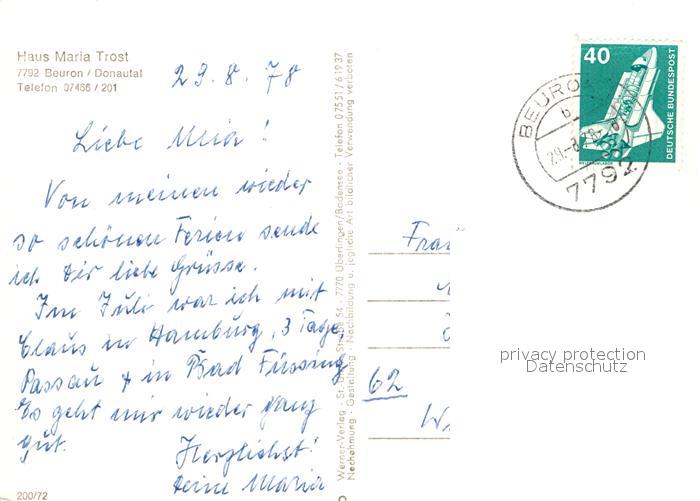 Haus Maria Trost
7792 Beuron / Donautal
Telefon 07466 / 201
23.8.78
Liebe Mia!
Von meinen wieder
so schönen Ferien sende
ich Dir liebe Grüsse.
Im Juli war ich mit
Claus in Hamburg, 3 Tage,
Passau & in Bad Füssing
Es geht mir wieder ganz
gut.
Herzlichst!
Deine Maria
200/72
Werner-Verlag · St. 54 · 7770 Überlingen/Bodensee · Telefon 07551/61937
Nachahmung · Gestaltung · Nachbildung u. jegliche Art bildlicher Verwendung verboten
40
DEUTSCHE BUNDESPOST
BEURO
b
7792
Frau
62
W
privacy protection
Datenschutz